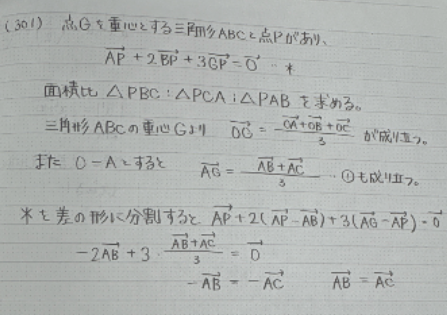 (301) 点Gを重心とする三角形ABCと点Pがあり、
AP→ + 2BP→ + 3GP→ = 0→ … *
面積比 △PBC : △PCA : △PAB を求める。
三角形ABCの重心Gより OG→ = (OA→ + OB→ + OC→)/3 が成り立つ。
また O-Aとすると AG→ = (AB→ + AC→)/3 ・①も成り立つ。
*を差の形に分割すると AP→ + 2(AP→ - AB→) + 3(AG→ - AP→) = 0→
-2AB→ + 3・(AB→ + AC→)/3 = 0→
-AB→ = -AC→ AB→ = AC→